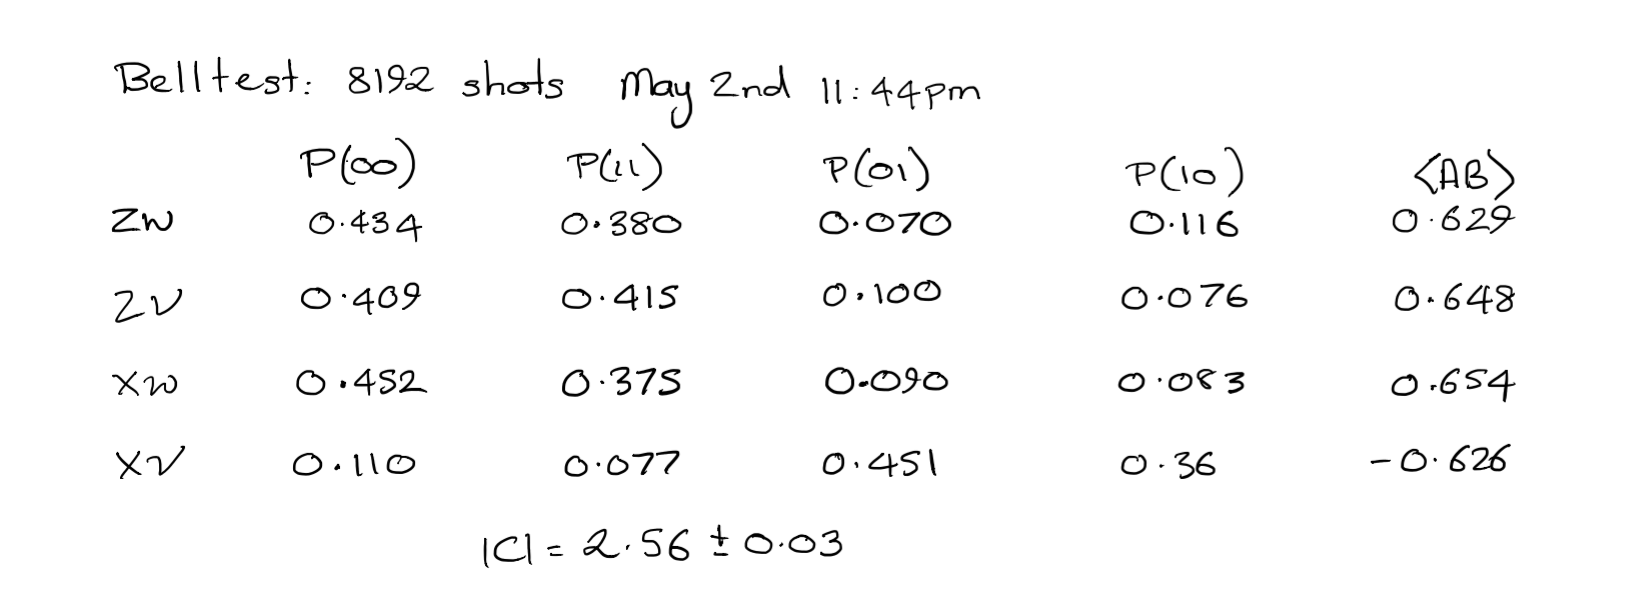 Bell test: 8192 shots May 2nd 11:44pm
P(00) P(11) P(01) P(10) <AB>
ZW 0.434 0.380 0.070 0.116 0.629
ZV 0.409 0.415 0.100 0.076 0.648
XW 0.452 0.375 0.090 0.083 0.654
XV 0.110 0.077 0.451 0.36 -0.626
|C| = 2.56 ± 0.03